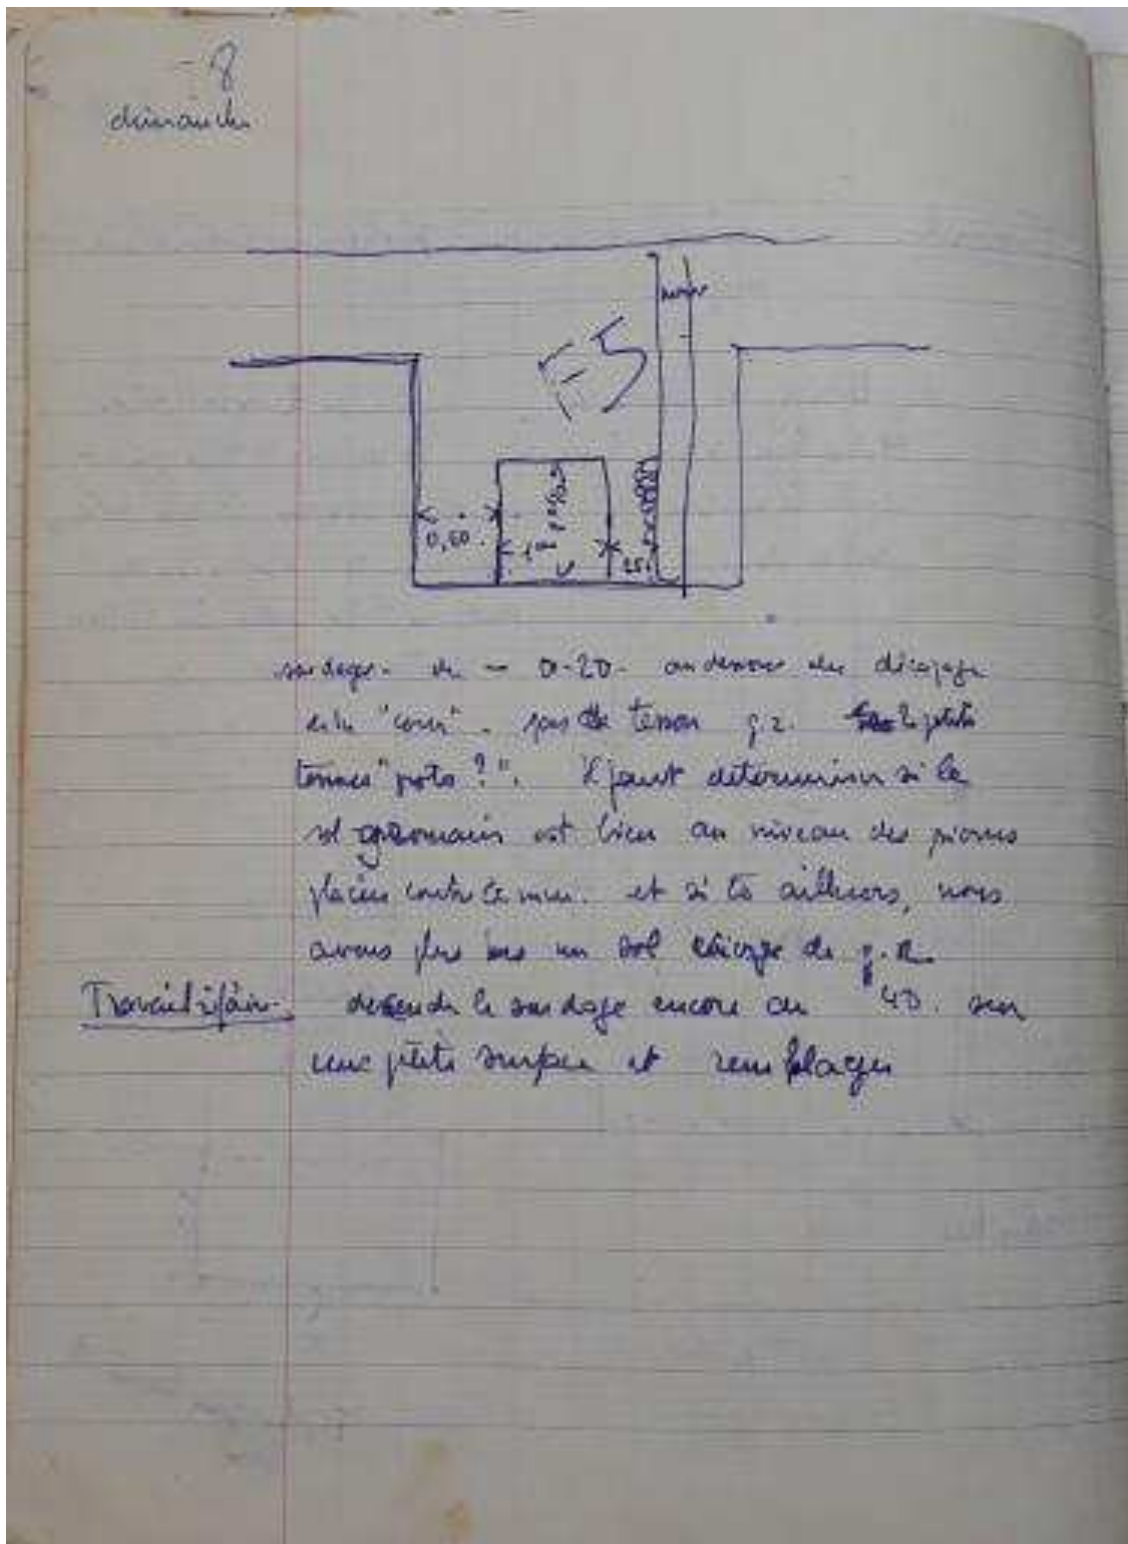 - 8
dimanche
mur
F5
0,60.
1m
25
sondage - de - 0-20 - au dessous du décapage
de la "cour" - pas de tesson g.r. 2 petits
tessons "proto ?". Il faut déterminer si le
sol g romain est bien au niveau des pierres
placées contre ce mur. et si là ailleurs, nous
avons plus bas un sol de g.R.
Travail à faire - descendre le sondage encore de 40. sur
une petite surface et remblayer